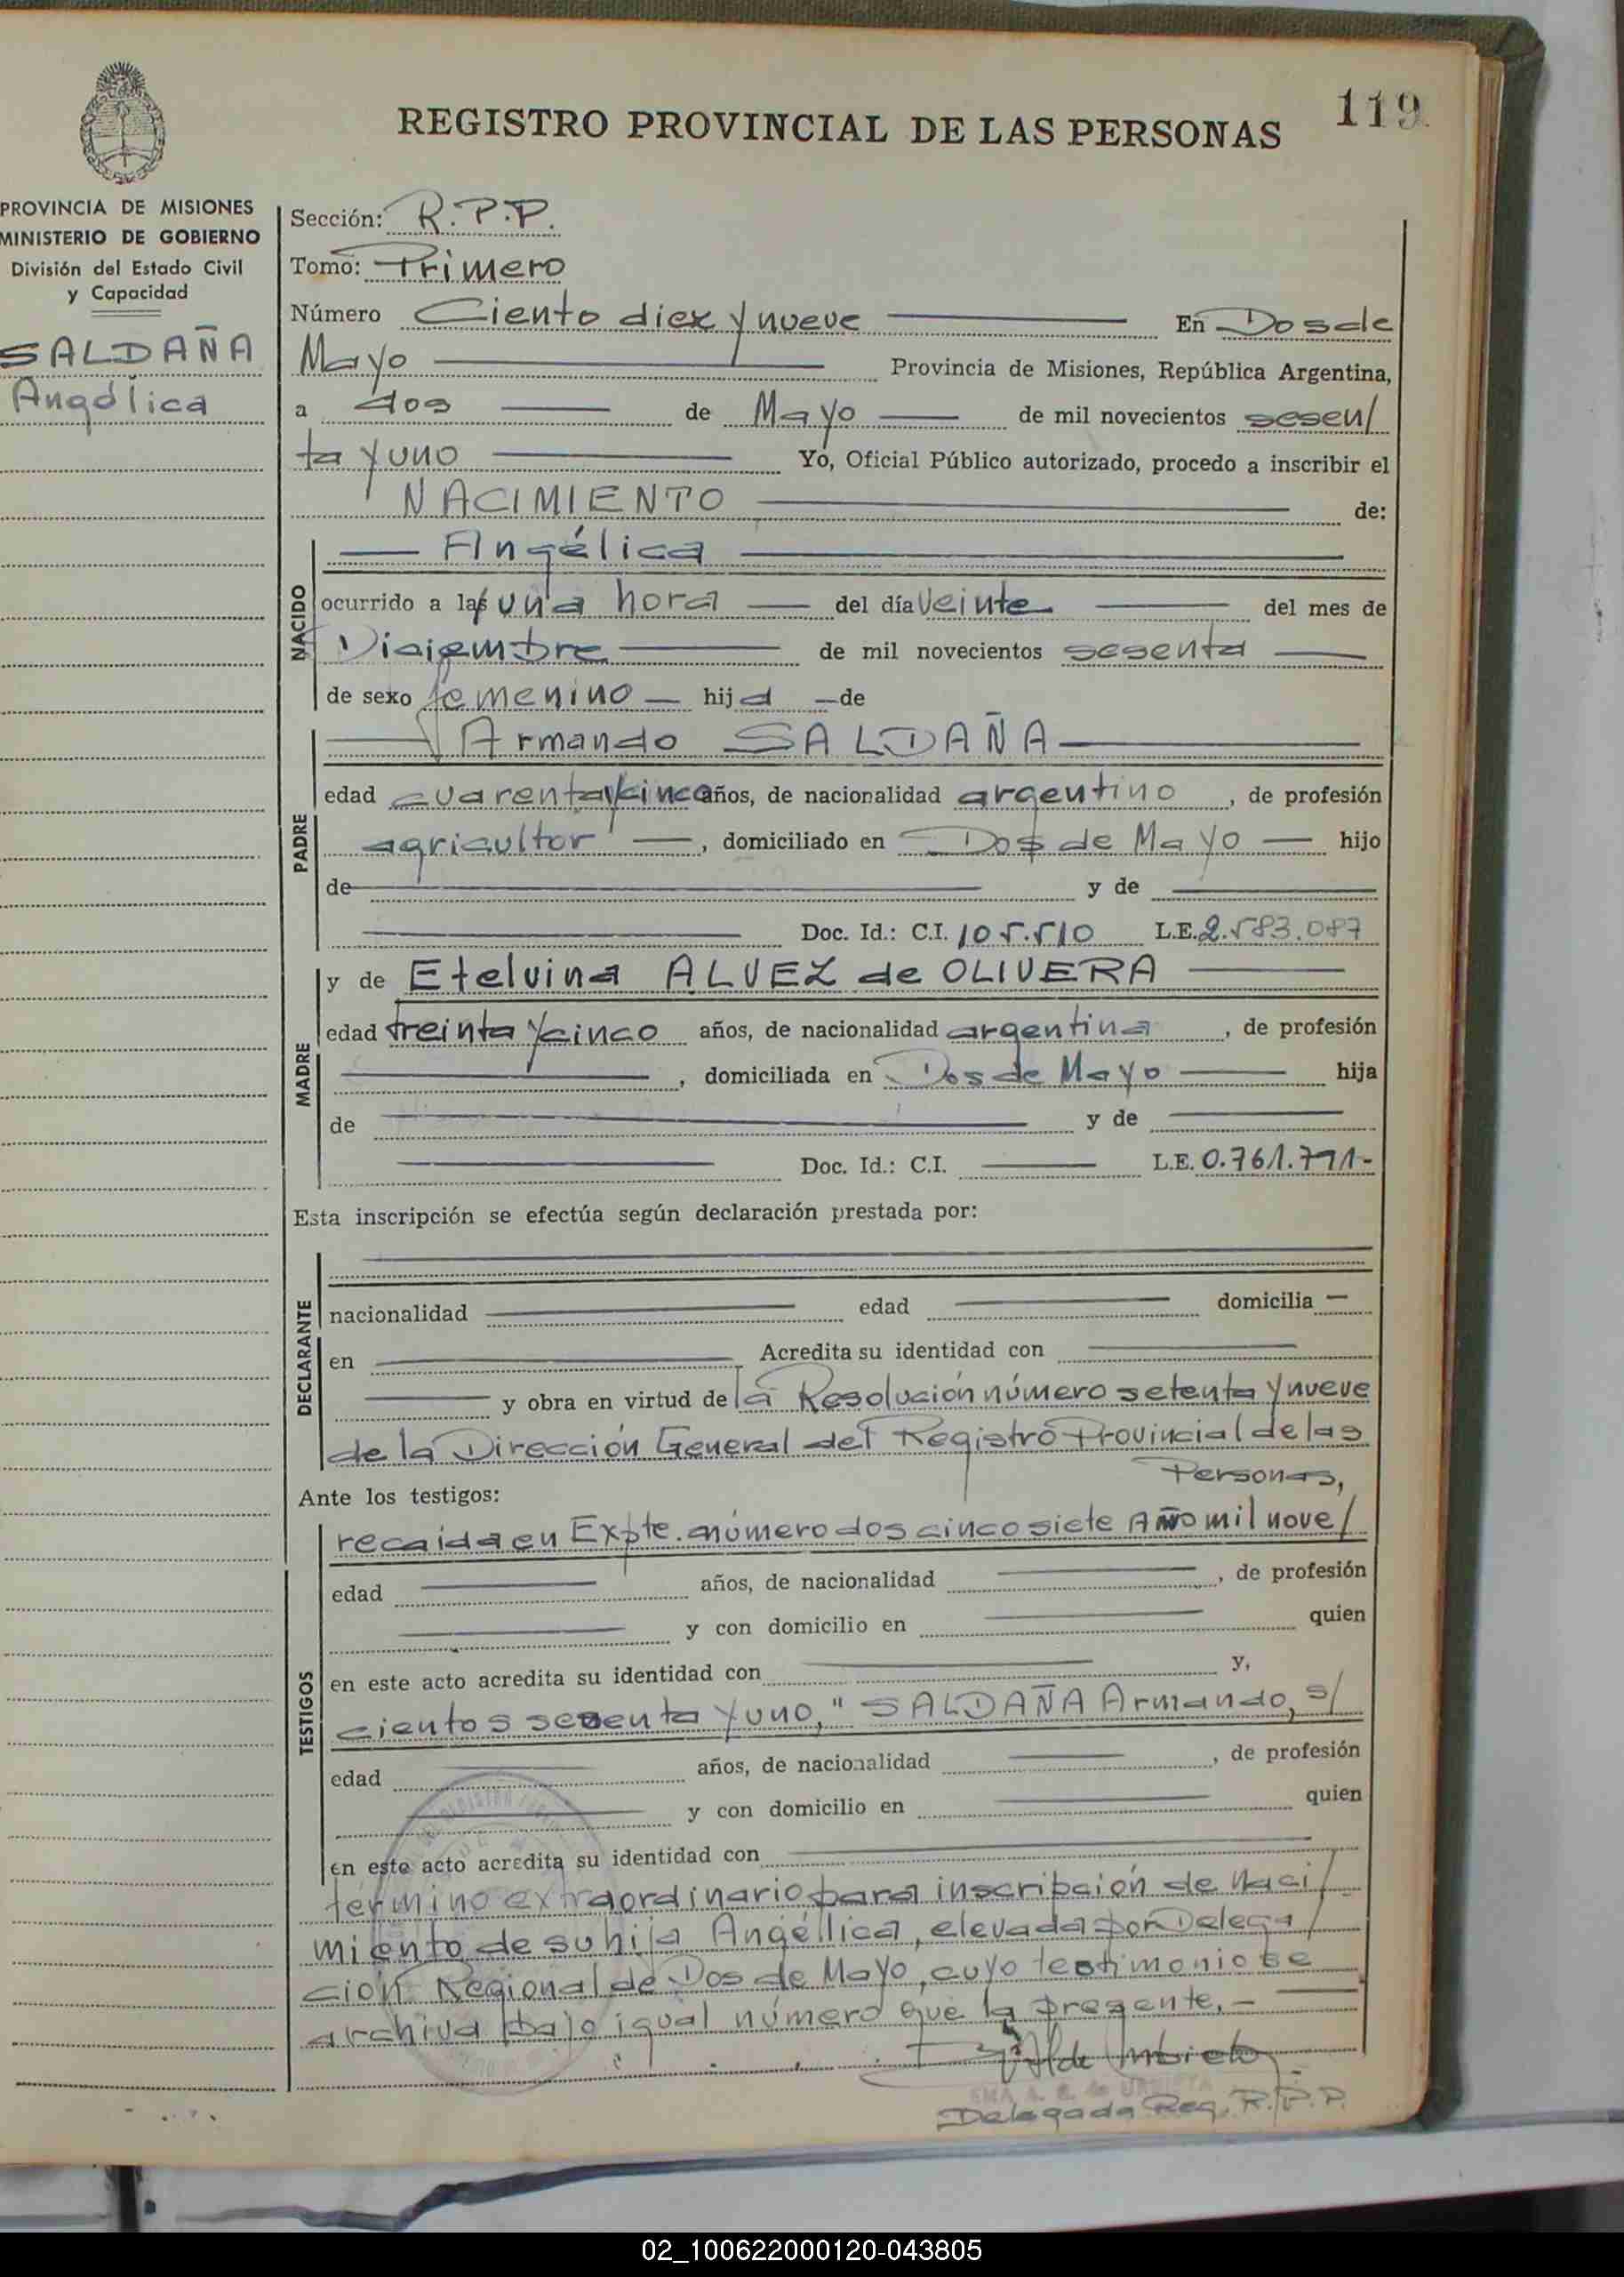 119
REGISTRO PROVINCIAL DE LAS PERSONAS
PROVINCIA DE MISIONES
MINISTERIO DE GOBIERNO
División del Estado Civil
y Capacidad
SALDAÑA
Angélica
Sección: R.P.P.
Tomo: Primero
Número Ciento diez y nueve En Dos de
Mayo Provincia de Misiones, República Argentina,
a dos de Mayo de mil novecientos sesen/
ta y uno Yo, Oficial Público autorizado, procedo a inscribir el
NACIMIENTO de:
NACIDO
Angélica
ocurrido a las una hora del día veinte del mes de
Diciembre de mil novecientos sesenta
de sexo femenino hija de
PADRE
Armando SALDAÑA
edad cuarenta y cinco años, de nacionalidad argentino, de profesión
agricultor, domiciliado en Dos de Mayo hijo
de y de
Doc. Id.: C.I. 105.510 L.E. 2.583.087
MADRE
y de Etelvina ALVEZ de OLIVERA
edad treinta y cinco años, de nacionalidad argentina, de profesión
, domiciliada en Dos de Mayo hija
de y de
Doc. Id.: C.I. L.E. 0.761.791-
Esta inscripción se efectúa según declaración prestada por:
DECLARANTE
nacionalidad edad domicilia
en Acredita su identidad con
y obra en virtud de la Resolución número setenta y nueve
de la Dirección General del Registro Provincial de las
Personas,
Ante los testigos:
TESTIGOS
recaida en Expte. número dos cinco siete Año mil nove/
edad años, de nacionalidad , de profesión
y con domicilio en quien
en este acto acredita su identidad con y,
cientos sesenta y uno, " SALDAÑA Armando, s/
edad años, de nacionalidad , de profesión
y con domicilio en quien
en este acto acredita su identidad con
término extraordinario para inscripción de naci/
miento de su hija Angéllica, elevada por Delega/
ción Regional de Dos de Mayo, cuyo testimonio se
archiva bajo igual número que la presente.-
Delegada Reg. R.P.P.
02_100622000120-043805